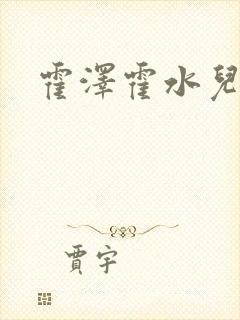 霍澤霍水兒
賈宇